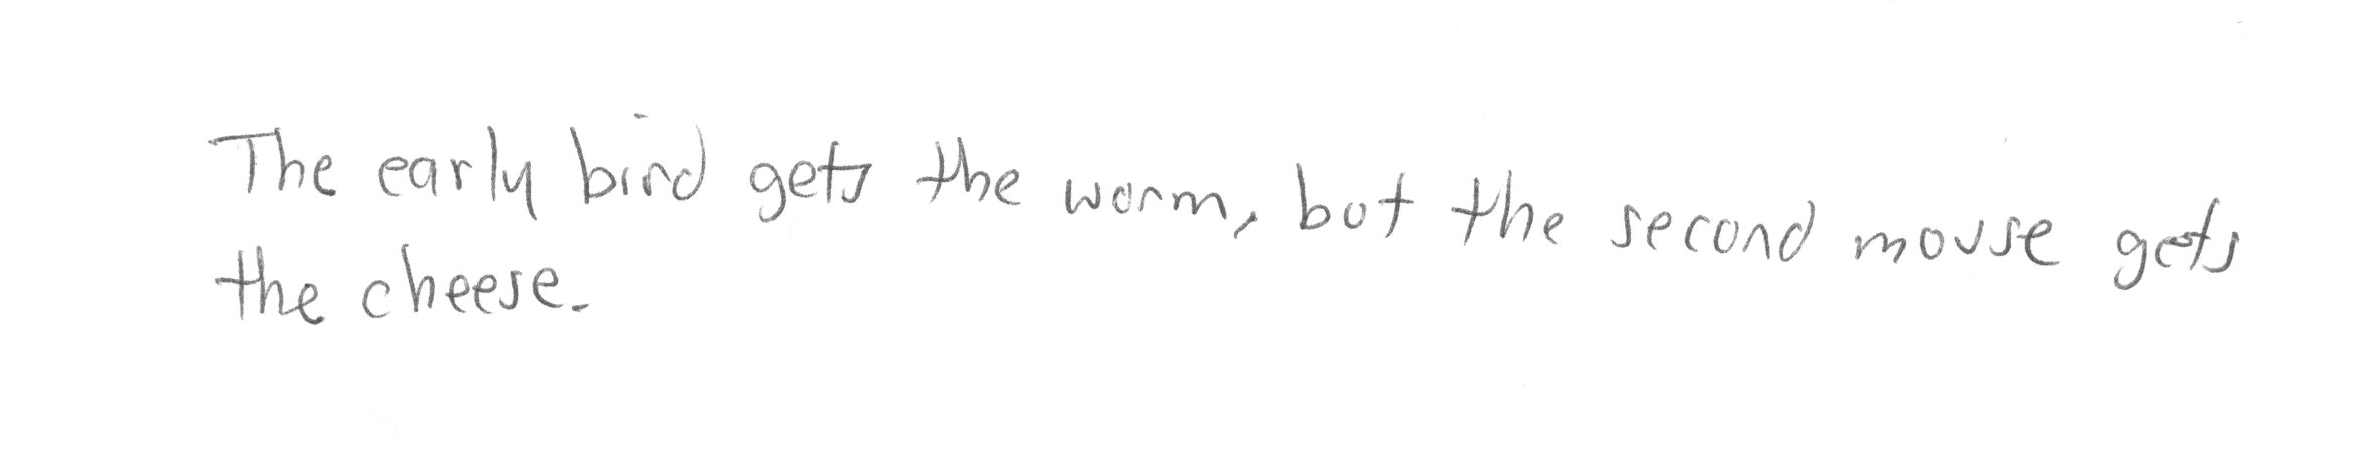 The early bird gets the worm, but the second mouse gets
the cheese.